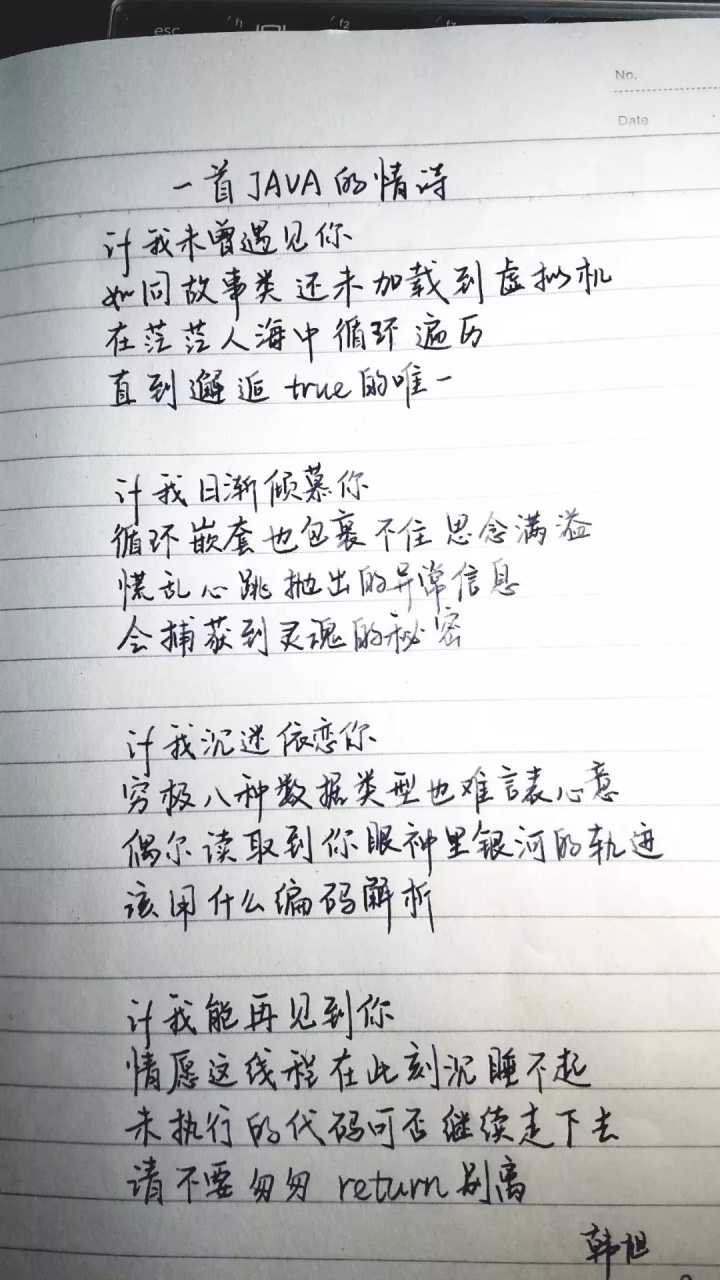 esc
f1
f2
f3
No.
Date
一首JAVA的情诗
if 我未曾遇见你
如同故事类还未加载到虚拟机
在茫茫人海中循环遍历
直到邂逅 true的唯一
if 我日渐倾慕你
循环嵌套也包裹不住思念满溢
慌乱心跳抛出的异常信息
会捕获到灵魂的秘密
if 我沉迷依恋你
穷极八种数据类型也难言表心意
偶尔读取到你眼神里银河的轨迹
该用什么编码解析
if 我能再见到你
情愿这线程在此刻沉睡不起
未执行的代码可否继续走下去
请不要匆匆 return别离
韩旭